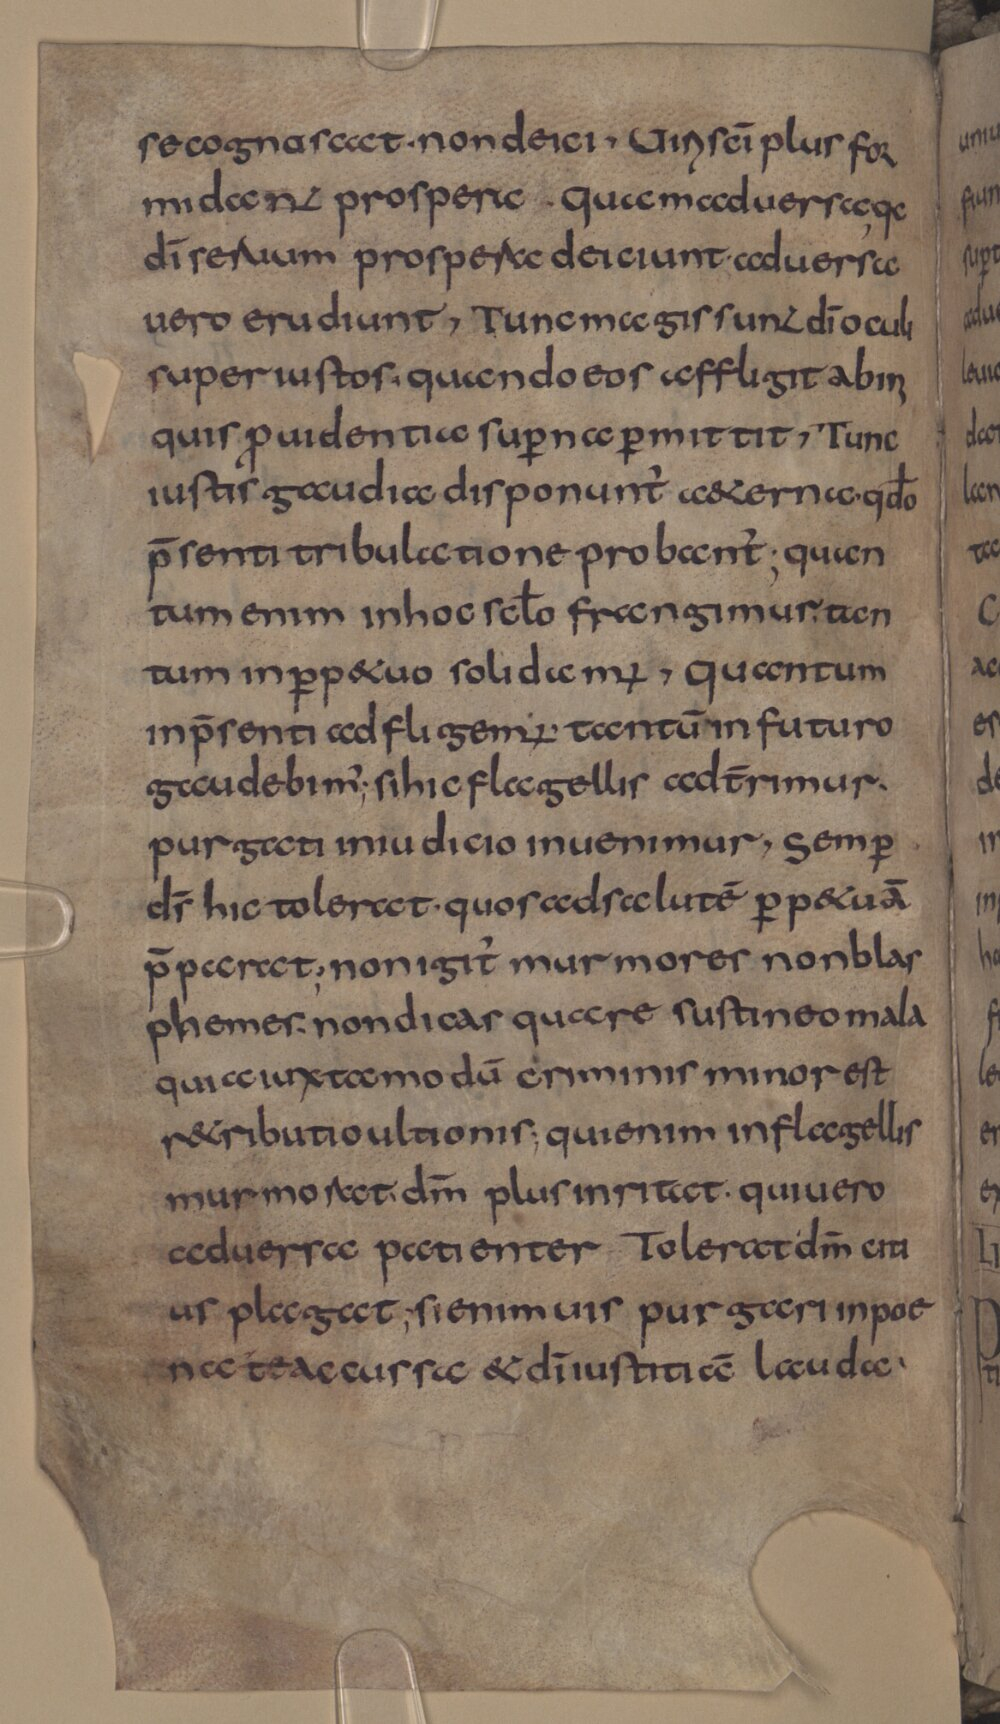 se cognoscat · non deici, Uiri sc̄i plus for
midant prospera · Quam aduersa, qa
dī seruum prospera deiciunt · aduersa
uero erudiunt, Tunc magis sunt dī oculi
super iustos · quando eos affligit ab ini
quis ꝓuidentia suꝑna ꝑmittit, Tunc
iustis gaudia disponunt᷒ aeterna · qdo
p̄senti tribulatione probant᷒; quan
tum enim in hoc sclo frangimur · tan
tum in ꝑpetuo solidamur, Quantum
in p̄senti adfligemur · tantū in futuro
gaudebim᷒; si hic flagellis adt̄rimur ·
purgati in iudicio inuenimur, Semꝑ
ds̄ hic tolerat · quos ad salutē ꝑpetuā
p̄parat; non igit᷒ murmores non blas
phemes · non dicas quare sustineo mala
quia iuxta modū criminis minor est
retributio ultionis; qui enim in flagellis
murmorat · dm̄ plus inritat · qui uero
aduersa patienter Tolerat dm̄ citi
us plagat; si enim uis purgari in poe
na te accussa et dī iustitiā lauda ·